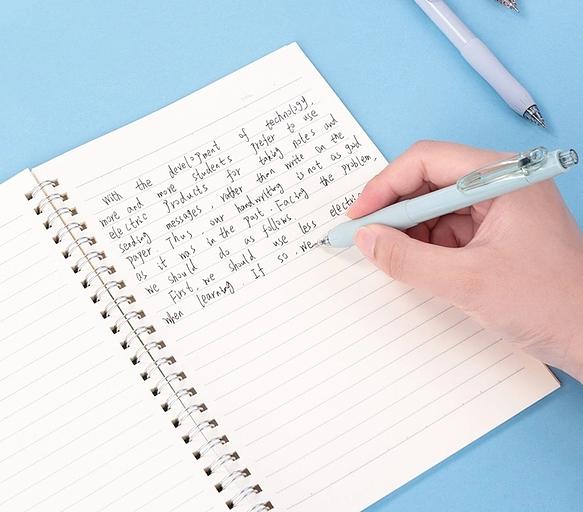 With the development of technology,
more and more students prefer to use
electric Products for taking notes and
sending messages, rather than write on the
paper. Thus, our handwriting is not as good
as it was in the past. Facing the problem,
we should do as follows.
First, we should use less electric
when learning. If so, we